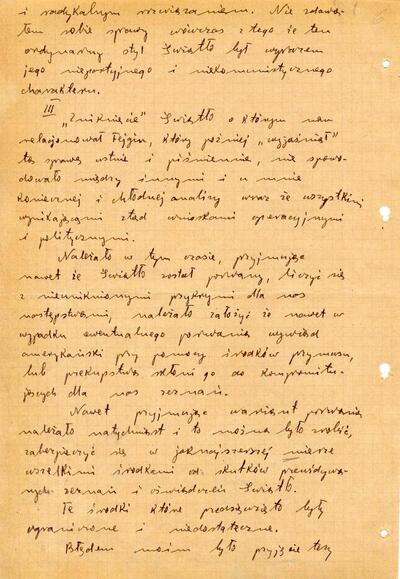 i radykalnym rozwiązaniem. Nie zdawa-
łem sobie sprawy wówczas z tego że ten
ordynarny styl Światło był wyrazem
jego niepartyjnego i niekomunistycznego
charakteru.
III
„Zniknięcie" Światło o którym nam
relacjonował Fejgin, który później „wyjaśniał"
tę sprawę ustnie i piśmiennie, nie spowo-
dowało między innymi i u mnie
koniecznej i chłodnej analizy wraz ze wszystkimi
wynikającymi stąd wnioskami operacyjnymi
i politycznymi.
Należało w tym czasie, przyjmując
nawet że Światło został porwany, liczyć się
z nieuniknionymi przykrymi dla nas
następstwami, należało założyć że nawet w
wypadku ewentualnego porwania wywiad
amerykański przy pomocy środków przymusu,
lub przekupstwa skłoni go do kompromitu-
jących dla nas zeznań.
Nawet przyjmując wariant porwania
należało natychmiast i to można było zrobić,
zabezpieczyć się w jaknajszerszej mierze
wszelkimi środkami od skutków przewidywa-
nych zeznań i oświadczeń Światło.
Te środki które przedsięwzięto były
ograniczone i niedostateczne.
Błędem moim było przyjęcie tezy